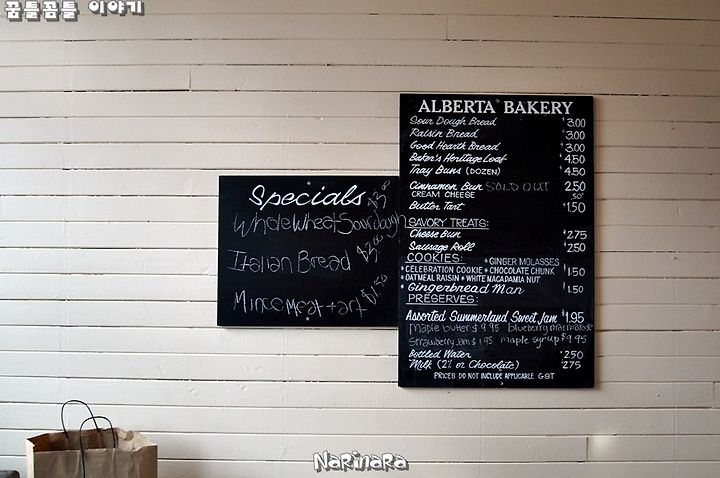 꿈틀꿈틀 이야기
Specials
Whole Wheat Sourdough $3.00
Italian Bread $3.00
Mincemeat tart $1.50
ALBERTA BAKERY
Sour Dough Bread $3.00
Raisin Bread $3.00
Good Hearth Bread $3.00
Baker's Heritage Loaf $4.50
Tray Buns (DOZEN) $4.50
Cinnamon Bun SOLD OUT 2.50
CREAM CHEESE .50
Butter Tart $1.50
SAVORY TREATS:
Cheese Bun $2.75
Sausage Roll $2.50
COOKIES: * GINGER MOLASSES
* CELEBRATION COOKIE * CHOCOLATE CHUNK
* OATMEAL RAISIN * WHITE MACADAMIA NUT $1.50
* Gingerbread Man $1.50
PRESERVES:
Assorted Summerland Sweet Jam $1.95
Maple butter $9.95 blueberry marmalade
Strawberry Jam $1.95 maple syrup $9.95
Bottled Water $2.50
Milk (2% or Chocolate) $2.75
PRICES DO NOT INCLUDE APPLICABLE GST
NaRiNaRa